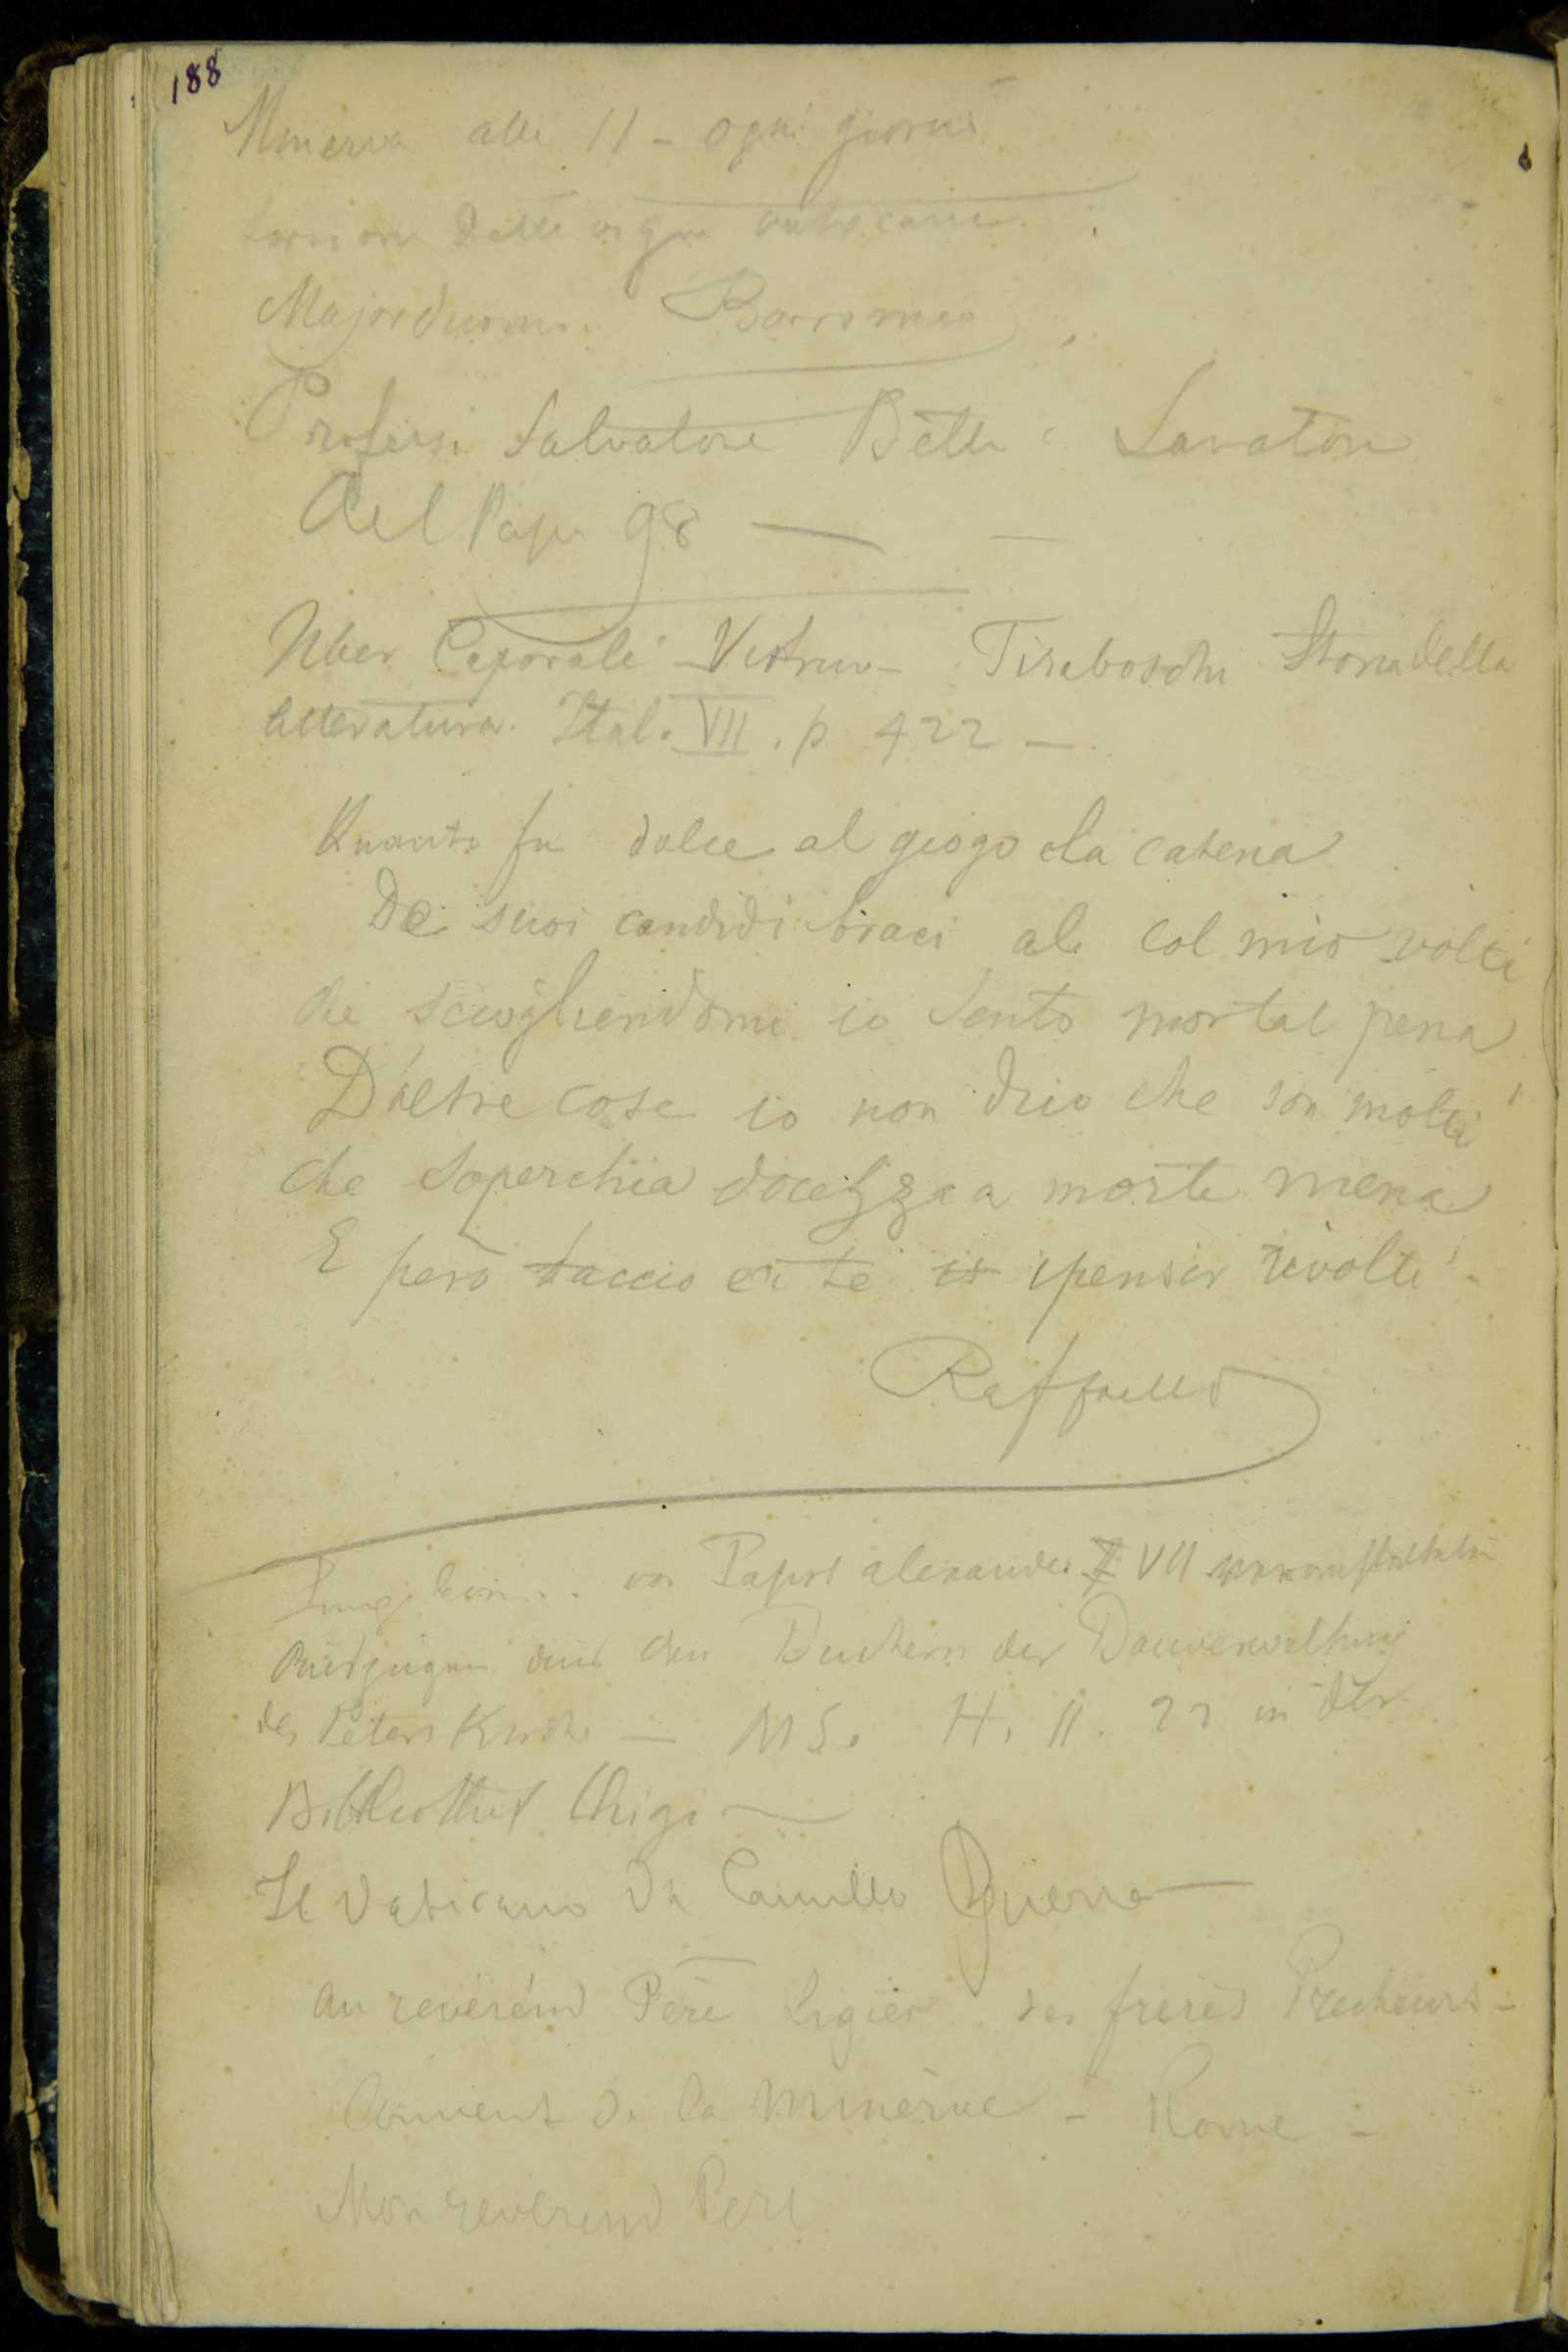 188
Minerva alle 11 - ogni giorno
delle vigne
Majorduomo. Borromeo
Profess. Salvatore Betti Lavatore
del Papa 98 —
Über Caporali Vitruv - Tiraboschi Storia della
letteratura. Ital. VII. p 422 —
Quanto fu dolce al giogo e la catena
De suoi candidi braci al col mio volti
che sciogliendomi io sento mortal pena
D'altre cose io non dico che son molti
che soperchia docezza a morte mena
E però taccio a te i pensir rivolti.
Raffaello
von Papst Alexander VII veranstalteten
Auszügen aus den Buchern der Bauverwaltung
der Peters Kirche — MS. H. II. 22 in der
Bibliothek Chigi —
Il Vaticano da Camillo Guerra —
Au reverénd Père Ligier des frères Precheurs -
Couvent de la Minerve - Rome -
Mon reverend Pere